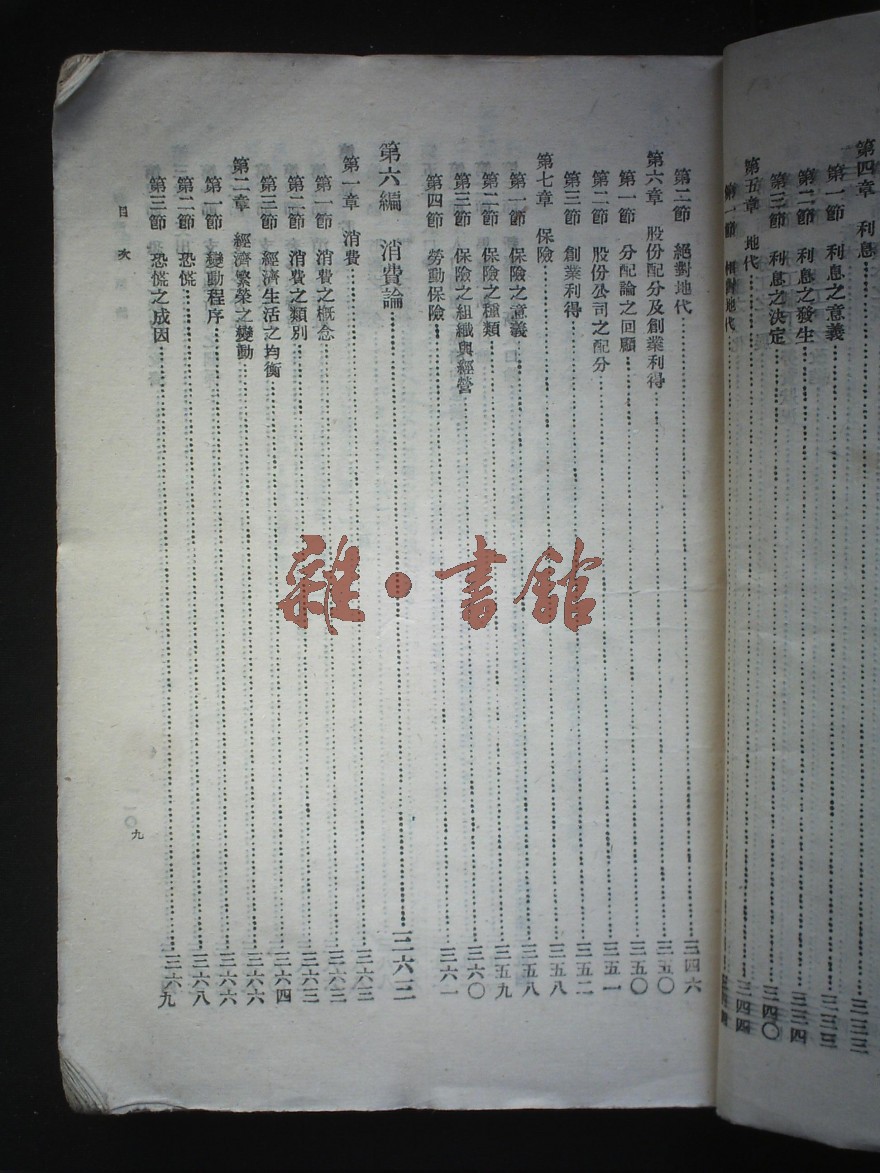 第四章 利息……三三三
第一節 利息之意義……三三三
第二節 利息之發生……三三四
第三節 利息之決定……三四〇
第五章 地代……三四四
第一節 相對地代……
第二節 絕對地代……三四六
第六章 股份配分及創業利得……三五〇
第一節 分配論之回顧……三五〇
第二節 股份公司之配分……三五一
第三節 創業利得……三五二
第七章 保險……三五八
第一節 保險之意義……三五八
第二節 保險之種類……三五九
第三節 保險之組織與經營……三六〇
第四節 勞動保險……三六一
第六編 消費論……三六三
第一章 消費……三六三
第一節 消費之概念……三六三
第二節 消費之類別……三六三
第三節 經濟生活之均衡……三六四
第二章 經濟繁榮之變動……三六六
第一節 變動程序……三六六
第二節 恐慌……三六八
第三節 恐慌之成因……三六九
目次
九
雜·書館